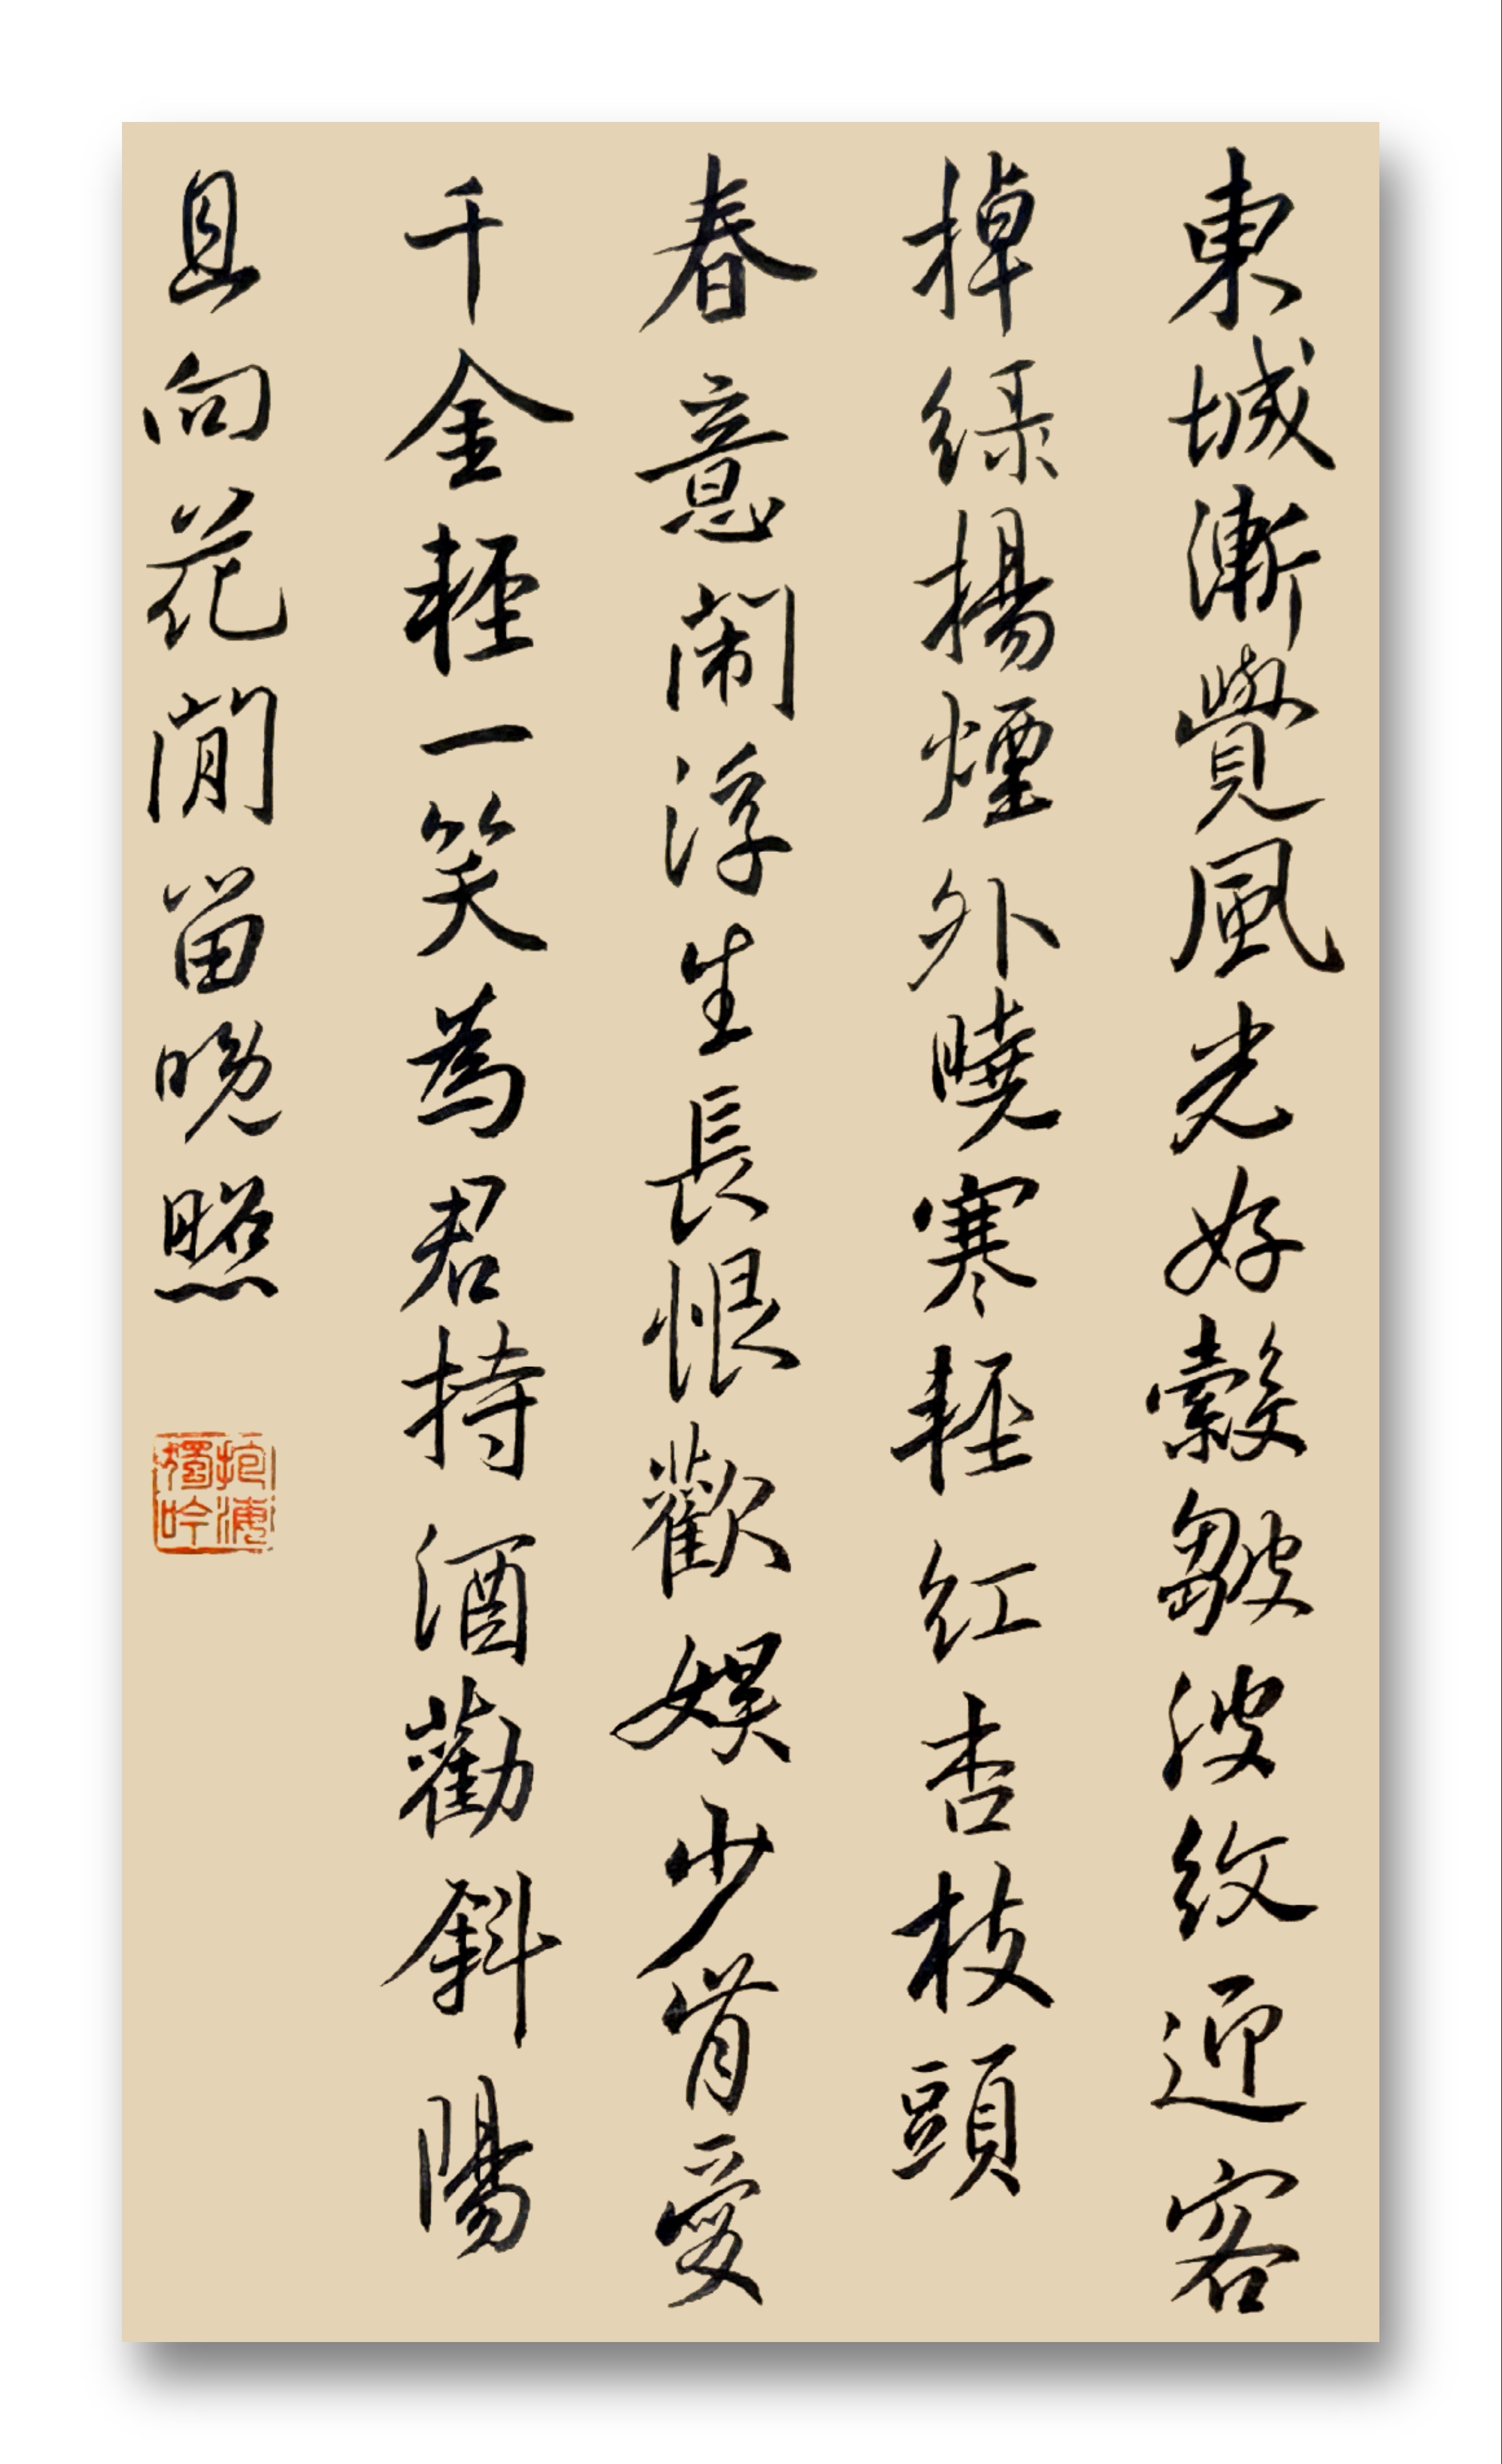 東城漸覺風光好縠皺波紋迎客
棹綠楊煙外曉寒輕紅杏枝頭
春意鬧浮生長恨歡娛少肯愛
千金輕一笑為君持酒勸斜陽
且向花間留晚照
抱海
獨吟